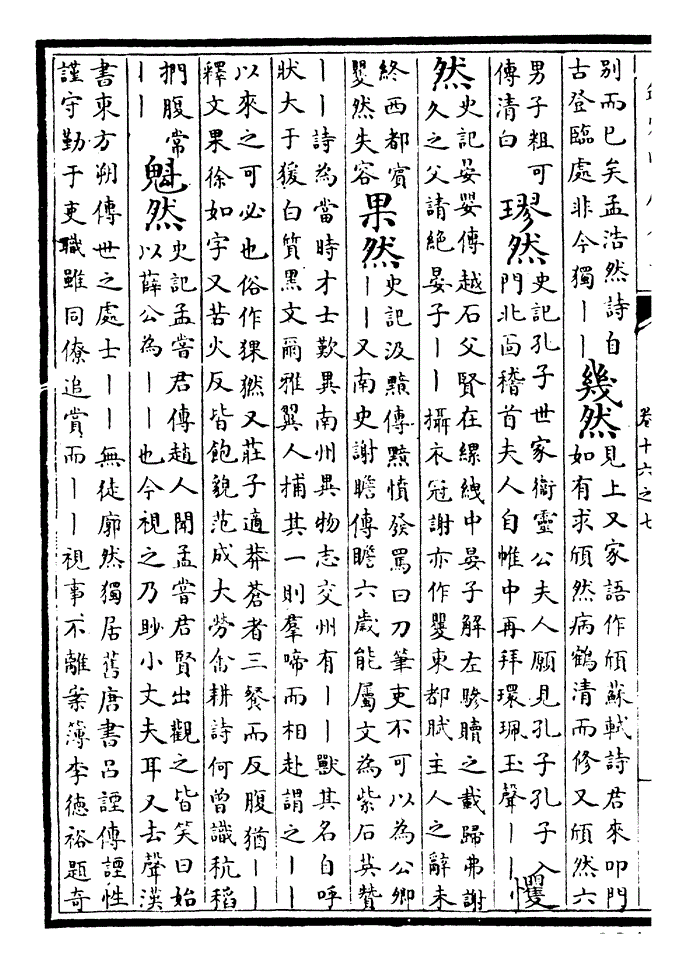 別而已矣孟浩然詩自
古登臨處非今獨丨丨
幾然
見上又家語作頎蘇軾詩君來叩門
如有求頎然病鶴清而修又頎然六
男子粗可
傳清白
璆然
史記孔子世家衞靈公夫人願見孔子孔子入
門北面稽首夫人自帷中再拜環珮玉聲丨丨
戄
然
史記晏嬰傳越石父賢在縲絏中晏子解左驂贖之載歸弗謝
久之父請絕晏子丨丨攝衣冠謝亦作矍東都賦主人之辭未
終西都賓
矍然失容
果然
史記汲黯傳黯憤發罵曰刀筆吏不可以為公卿
丨丨又南史謝瞻傳瞻六歲能屬文為紫石英贊
丨丨詩為當時才士歎異南州異物志交州有丨丨獸其名自呼
狀大于猨白質黑文爾雅翼人捕其一則羣啼而相赴謂之丨丨
以來之可必也俗作猓㺀又莊子適莽蒼者三餐而反腹猶丨丨
釋文果徐如字又苦火反皆飽貌范成大勞畬耕詩何曾識秔稻
捫腹常
丨丨
魁然
史記孟嘗君傳趙人聞孟嘗君賢出觀之皆笑曰始
以薛公為丨丨也今視之乃眇小丈夫耳又去聲漢
書東方朔傳世之處士丨丨無徒廓然獨居舊唐書呂諲傳諲性
謹守勤于吏職雖同僚追賞而丨丨視事不離案簿李德裕題奇
卷十六之七